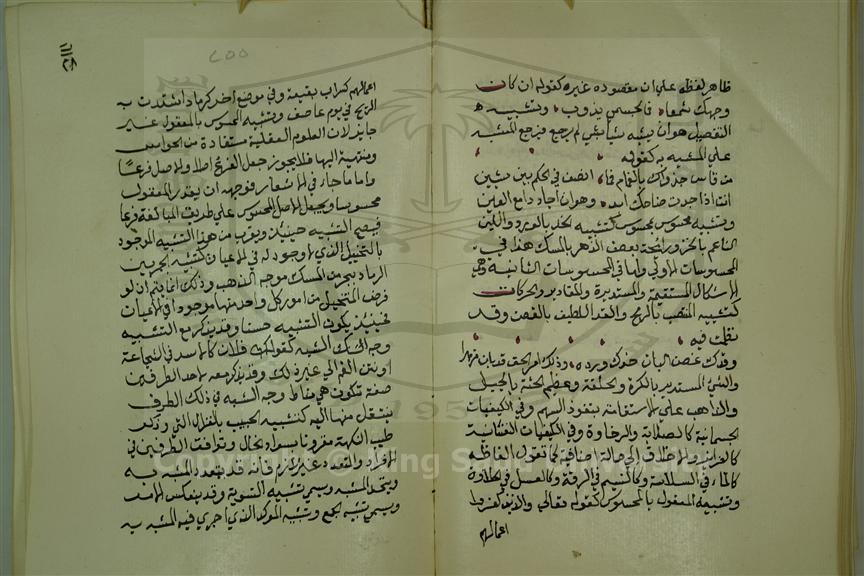 ظاهر لفظه على ان مقصوده غيره كقوله ان كان
وجهك شمعا فالجسمي يذوب وتشبيه
التفضيل هو ان يشبه شيأ بشئ لم يرجع فيرجع المشبه
على المشبه به كقوله
من قاس جدواك بالغمام فما انصف في الحكم بين شيئين
انت اذا جدت ضاحك ابدا وهو ان جاد دامع العين
وتشبيه محسوس بمحسوس كتشبيه الخد بالورد واللين
الناعم بالخز ورائحة بعض الزهر بالمسك هذا في
المحسوسات الاولى واما في المحسوسات الثانية وهي
الاشكال المستقيمة والمستديرة والمقادير والحركات
كتشبيه المنتصب بالرمح والقد اللطيف بالغصن وقد
نظمت فيه
وقدك غصن البان خدك ورده وذلك امر الحق قد بان
والشئ المستدير بالكرة والحلقة وعظيم الجثة بالجبل
والذاهب على الاستقامة بنفوذ السهم وفي الكيفيات
الجسمانية كالصلابة والرخاوة وفي الكيفيات النفسانية
كالغرائز والاخلاق او في حالة اضافية كما تقول الفاظه
كالماء في السلاسة وكالنسيم في الرقة وكالعسل في الحلاوة
وتشبيه المعقول بالمحسوس كقوله تعالى والذين كفروا
اعمالهم
اعمالهم كسراب بقيعة وفي موضع اخر كرماد اشتدت به
الريح في يوم عاصف وتشبيه المحسوس بالمعقول غير
جايز لان العلوم العقلية مستفادة من الحواس
ومنتهية اليها فلا يجوز جعل الفرع اصلا والاصل فرعا
واما ما جاء في الاشعار فوجهه ان يقدر المعقول
محسوسا ويجعل الاصل المحسوس على طريق المبالغة فرعا
فيصح التشبيه حينئذ ويقرب من هذا التشبيه الموجود
بالتخييل الذي لا وجود له في الاعيان كتشبيه الجمر بين
الرماد ببحر من المسك موجه الذهب وذلك انما يتم ان لو
فرض المتخيل من امور كل واحد منها موجود في الاعيان
فحينئذ يكون التشبيه حسنا وقد يذكر مع التشبيه
وجه الشبه كقولك فلان كالاسد في الشجاعة
او نتن الفم الى غير ذلك وقد يذكر معه لاحد الطرفين
صفة تكون هي مناط وجه الشبه في ذلك الطرف
ينتقل منها اليه كتشبيه الحبيب بالغزال
طيب النكهة مقرونا بسواد الخال وتوافق الطرفين في
الافراد والتعدد غير لازم فانه قد يتعدد المشبه به
ويتحد المشبه ويسمى تشبيه التسوية وقد ينعكس الامر
ويسمى تشبيه الجمع وتشبيه الموكد الذي اجري فيه المشبه به
٢٥٥
Copyright © King Saud University
195